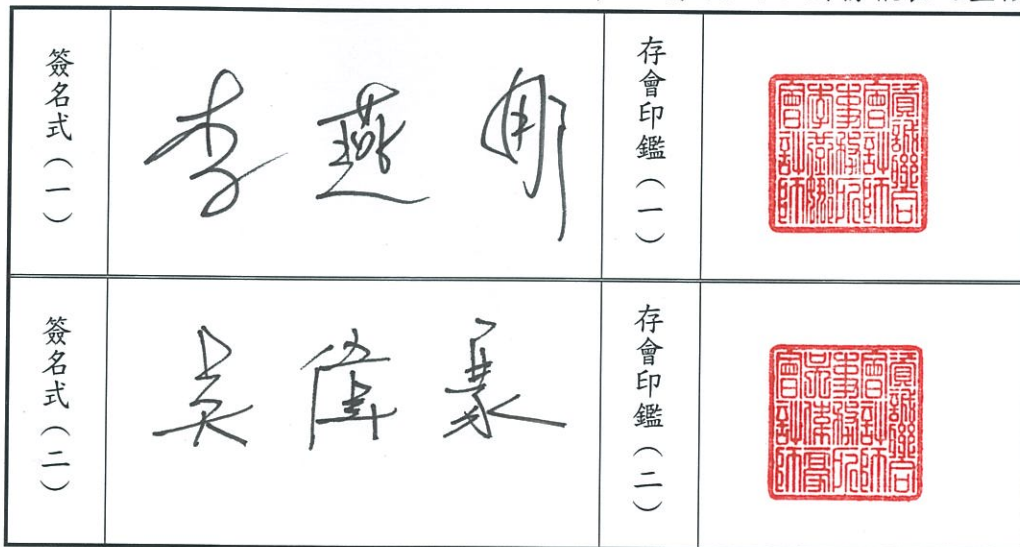 簽名式（一）
李燕娜
存會印鑑（一）
資誠聯合
會計師
事務所
李燕娜
會計師
簽名式（二）
吳偉豪
存會印鑑（二）
資誠聯合
會計師
事務所
吳偉豪
會計師